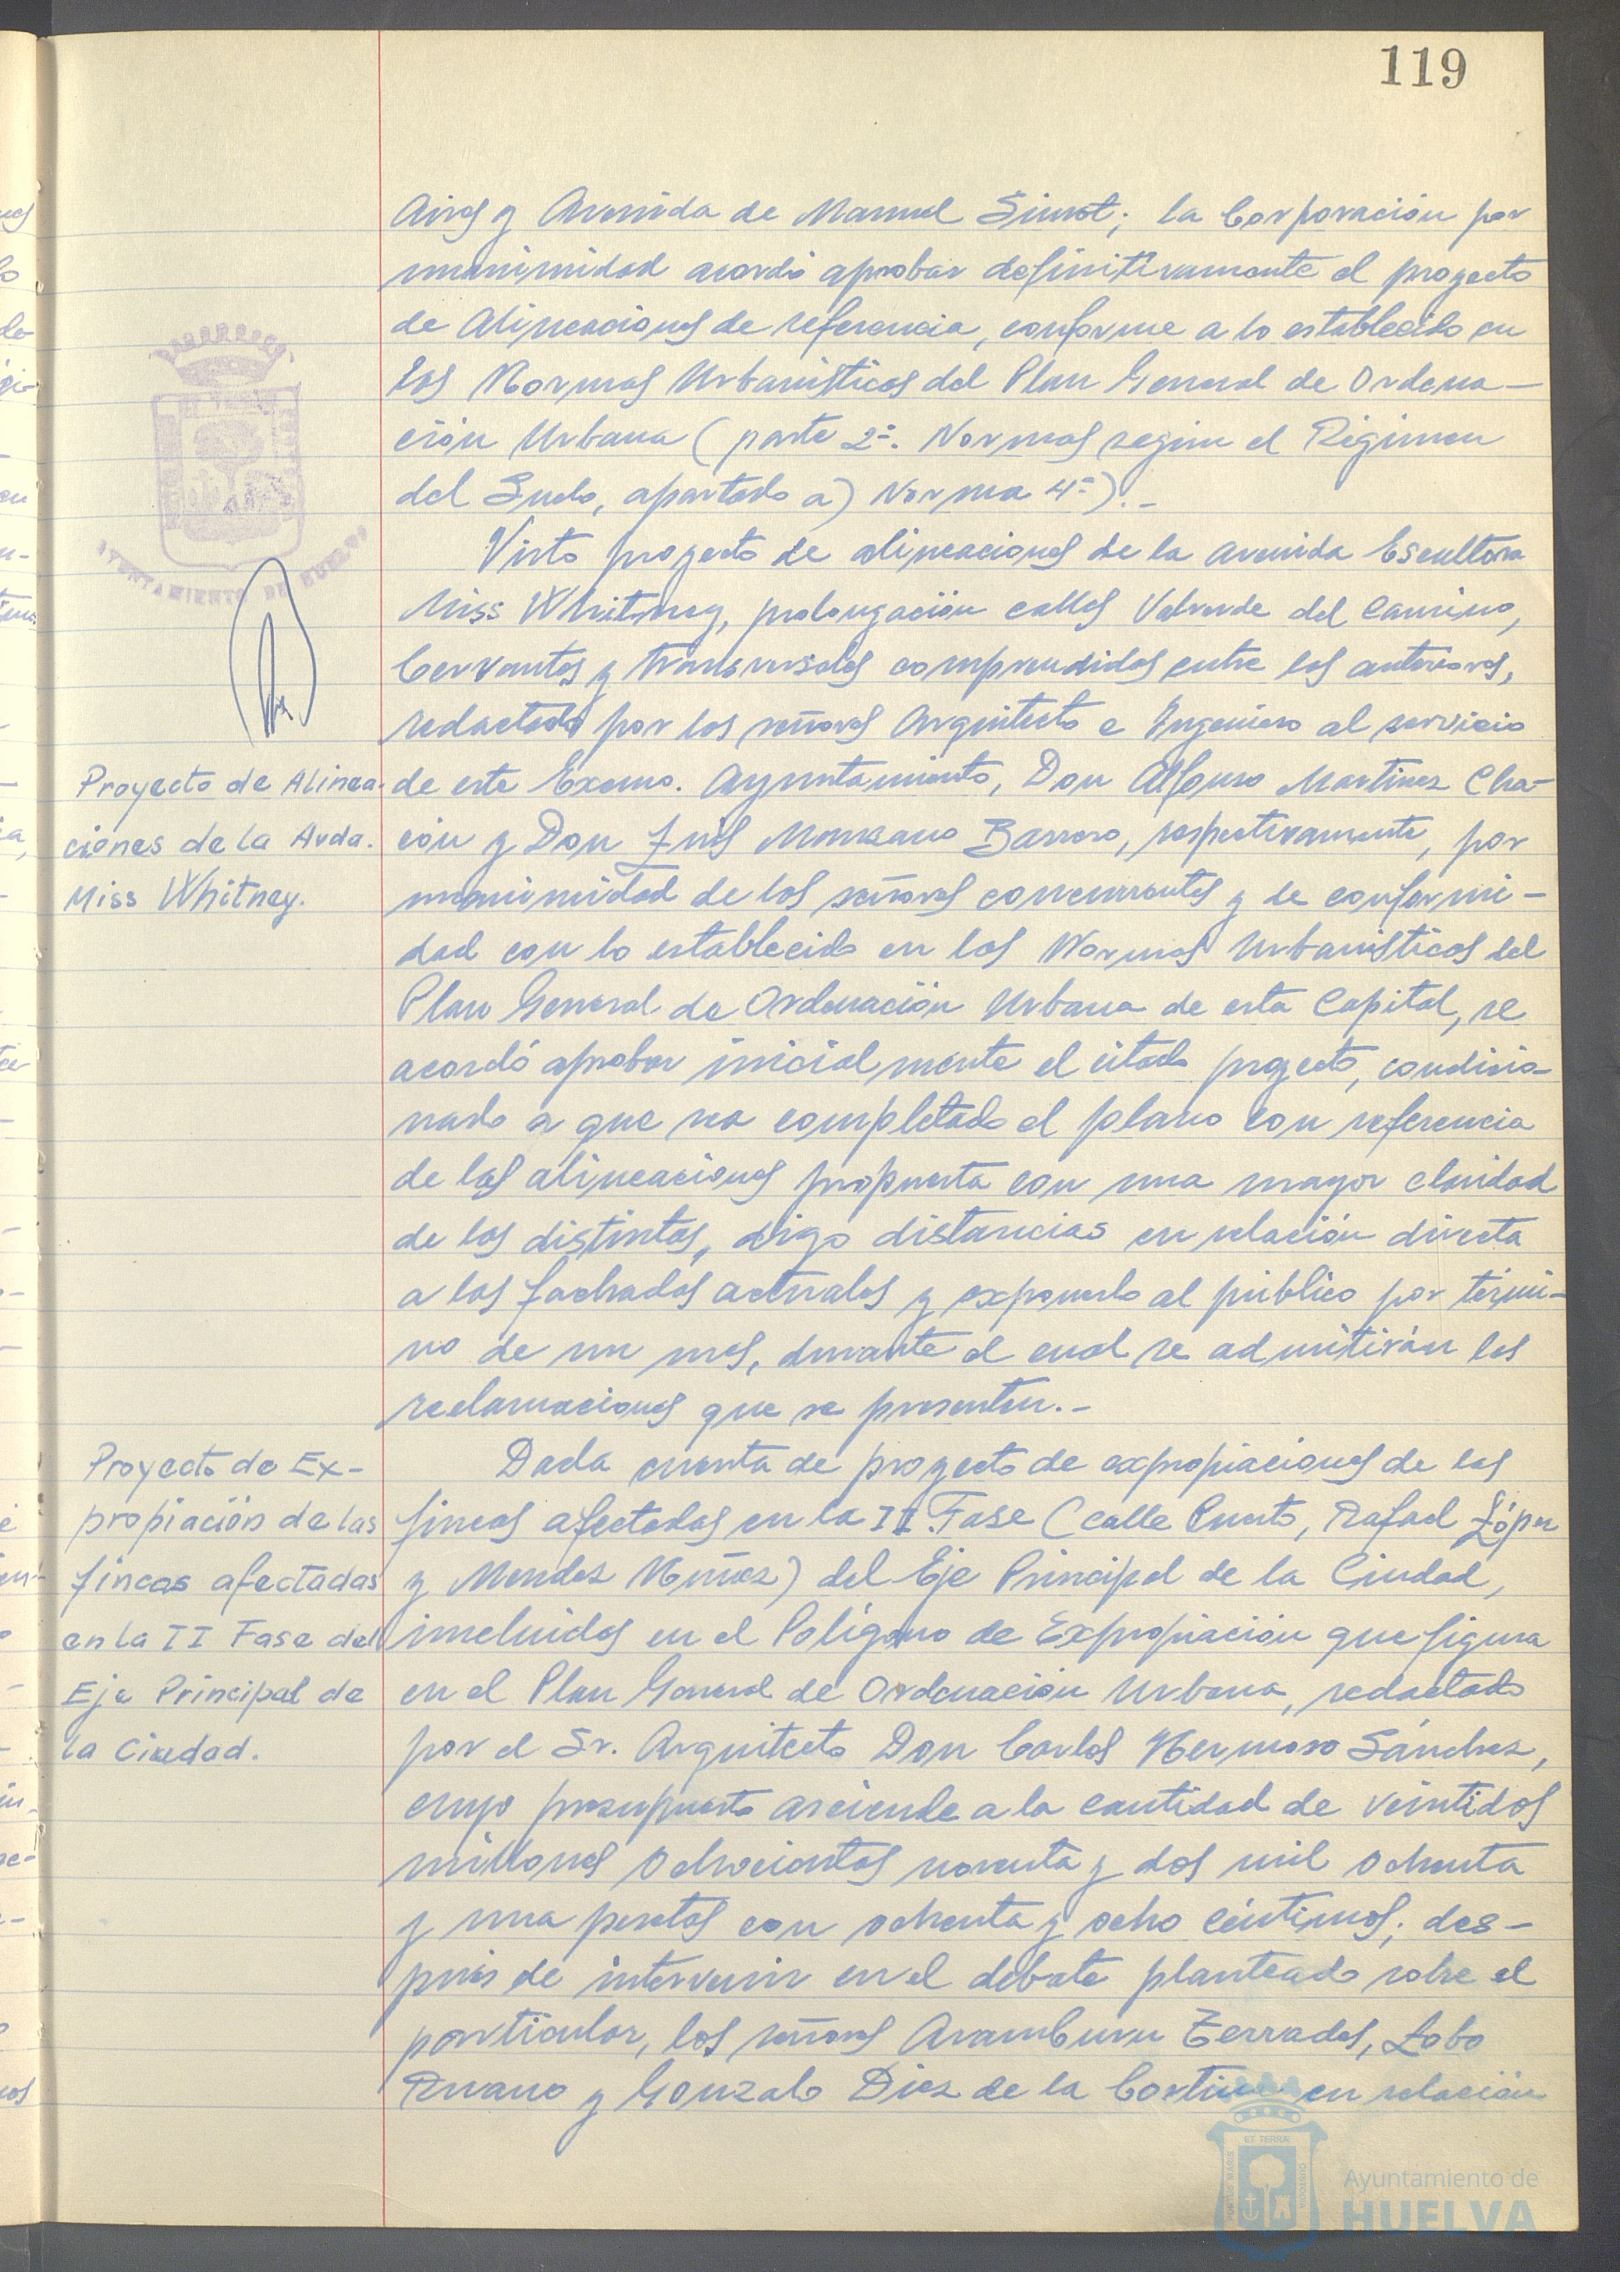 119
Aires y Avenida de Manuel Siurot; la Corporación por
unanimidad acordó aprobar definitivamente el proyecto
de Alineaciones de referencia, conforme a lo establecido en
las Normas Urbanísticas del Plan General de Ordena-
ción Urbana (parte 2ª. Normas según el Régimen
del Suelo, apartado a) Norma 4ª).-
Visto proyecto de alineaciones de la avenida Escultora
Miss Whitney, prolongación calles Valverde del Camino,
Cervantes y transversales comprendidas entre las anteriores,
redactado por los señores Arquitecto e Ingeniero al servicio
Proyecto de Alinea-
ciones de la Avda.
Miss Whitney.
de este Excmo. Ayuntamiento, Don Alfonso Martinez Cha-
cón y Don Luis Manzano Barrero, respectivamente, por
unanimidad de los señores concurrentes y de conformi-
dad con lo establecido en las Normas Urbanísticas del
Plan General de Ordenación Urbana de esta Capital, se
acordó aprobar inicialmente el citado proyecto, condicio-
nado a que sea completado el plano con referencia
de las alineaciones propuesta con una mayor claridad
de las distintas, digo distancias en relación directa
a las fachadas actuales y exponerlo al público por térmi-
no de un mes, durante el cual se admitirán las
reclamaciones que se presenten.-
Proyecto de Ex-
propiación de las
fincas afectadas
en la II Fase del
Eje Principal de
la Ciudad.
Dada cuenta de proyecto de expropiaciones de las
fincas afectadas en la II Fase (calle Puerto, Rafael López
y Mendez Nuñez) del Eje Principal de la Ciudad,
incluidas en el Polígono de Expropiación que figura
en el Plan General de Ordenación Urbana, redactado
por el Sr. Arquitecto Don Carlos Hermoso Sánchez,
cuyo presupuesto asciende a la cantidad de veintidos
millones ochocientas noventa y dos mil ochenta
y una pesetas con ochenta y ocho céntimos; des-
pués de intervenir en el debate planteado sobre el
particular, los señores Aramburu Terrades, Lobo
Ruano y Gonzalo Diez de la Cortina en relación
AYUNTAMIENTO DE HUELVA
ET TERRAE
Ayuntamiento de
HUELVA